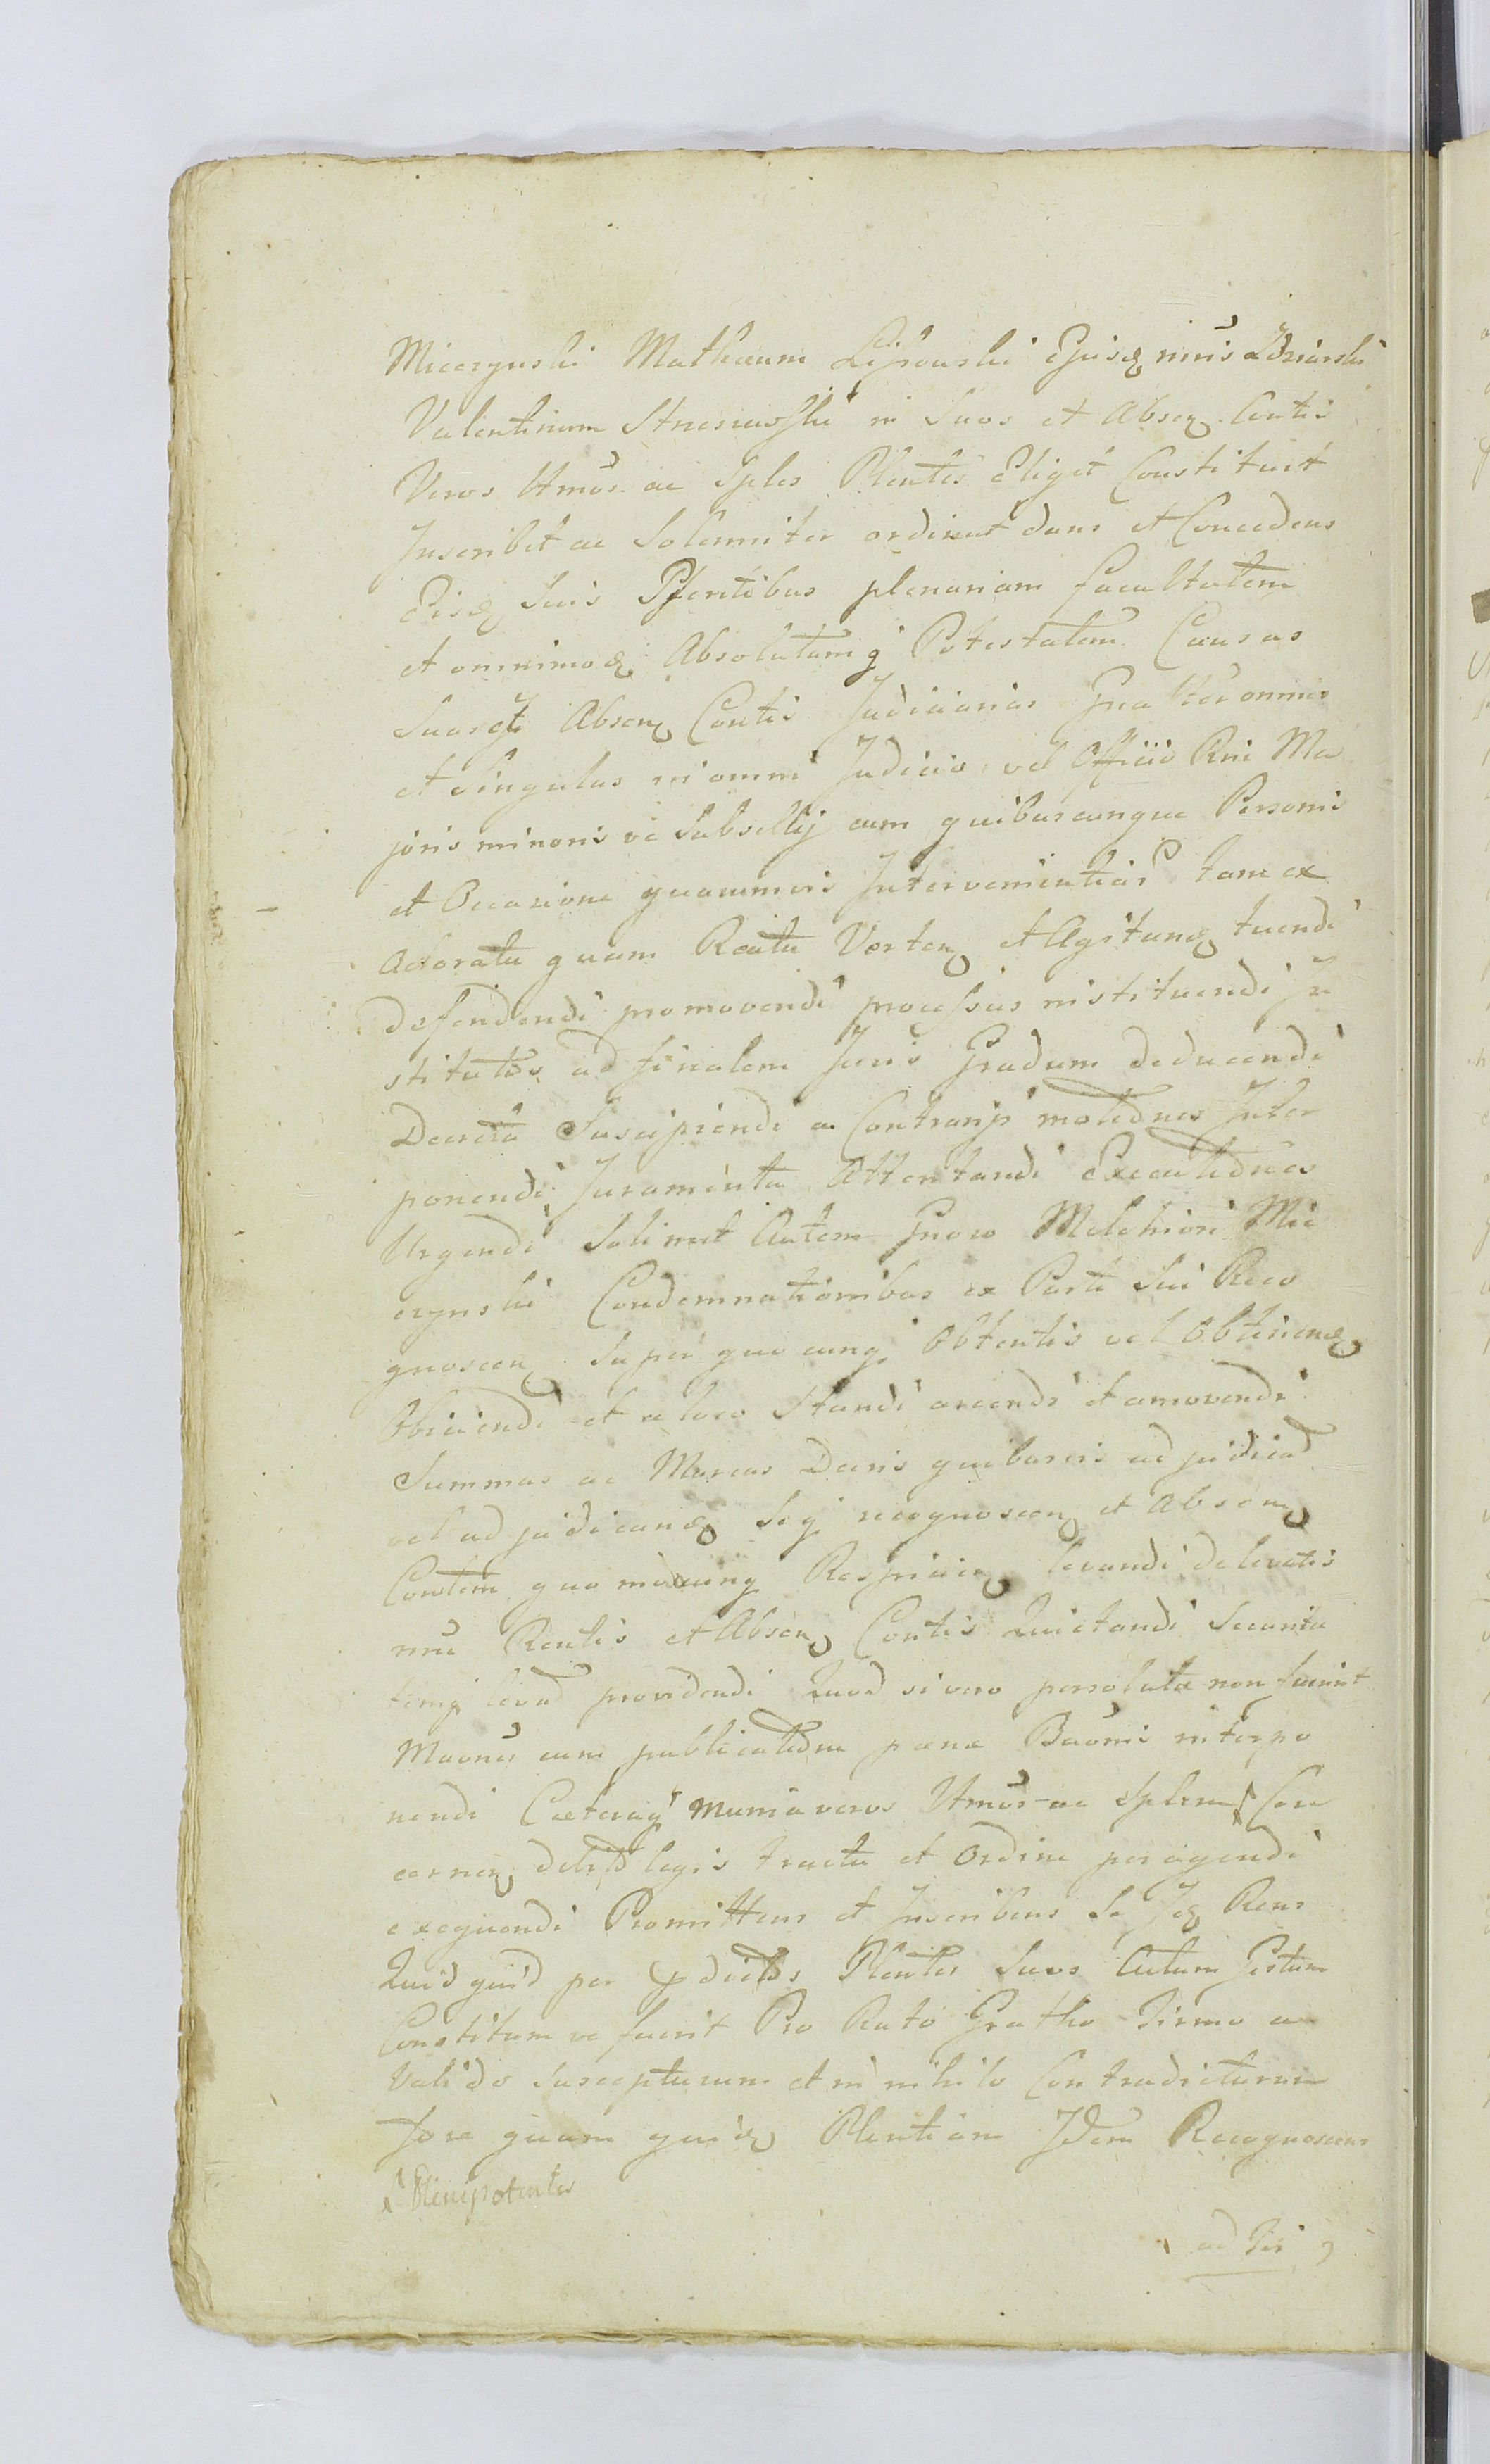 Miczynski Mathæum Lipowski Ejusq nnis Zdziarski
Valentinum in Suos et Absen Contis
Veros Ltmos ac Sples Plentes Eligit Constituit
Inscribit ac Solemniter ordinat dans et Concedens
Eisq Suis Plentibus plenariam facultatem
et omnimoq Absolutamq Potestatem Causas
Suas et Absen Contis Judiciarias Gnaliter omnes
et Singulas in omni Judicio vel Officio Rni Ma
joris minoris ve Subsellij cum quibuscunque Personis
et Occasione quarumvis Intervenientias tam ex
Actoratu quam Reatu Verten et Agitanq tuendi
defendendi promovendi processus instituendi In
stitutos ad finalem Juris Gradum deducendi
Decreta Suscipiendi a Contrarijs motiones Inter
ponendi Juramenta Attentandi Executiones
Urgendi Salimet Autem Gnoso Melchiori Mic
zynski Condemnationibus ex Parte Sui Reco
gnoscen Super quocunq Obtentis vel Obtinenq
Obiiciendi et a loco Standi arcendi et amovendi
Summas ac Marcas Decris quibusvis adjudicat
vel adjudicanq Seq recognoscen et Absen
Contem quomodocunq Respicien levandi de levatis
nne Rentis et Absen Contis Quietandi Securita
temq levat providendi Quod si vero persolutæ non fuerint
Maones cum publicatione pœnæ Baonis interpo
nendi Cæteraq munia veros Ltmos ac Sples Con
cernen debito legis tractu et Ordine peragendi
exequendi Promittens et Inscribens Se Iq Rens
Quidquid per pdictos Plentes Suos Actum Gestum
Constitum ve fuerit Pro Rato Gratho Firmo ac
Valido Suscepturum et in nihilo Contradicturum
fore quam quiq Plentiam Idem Recognoscens
Plenipotentes
ad